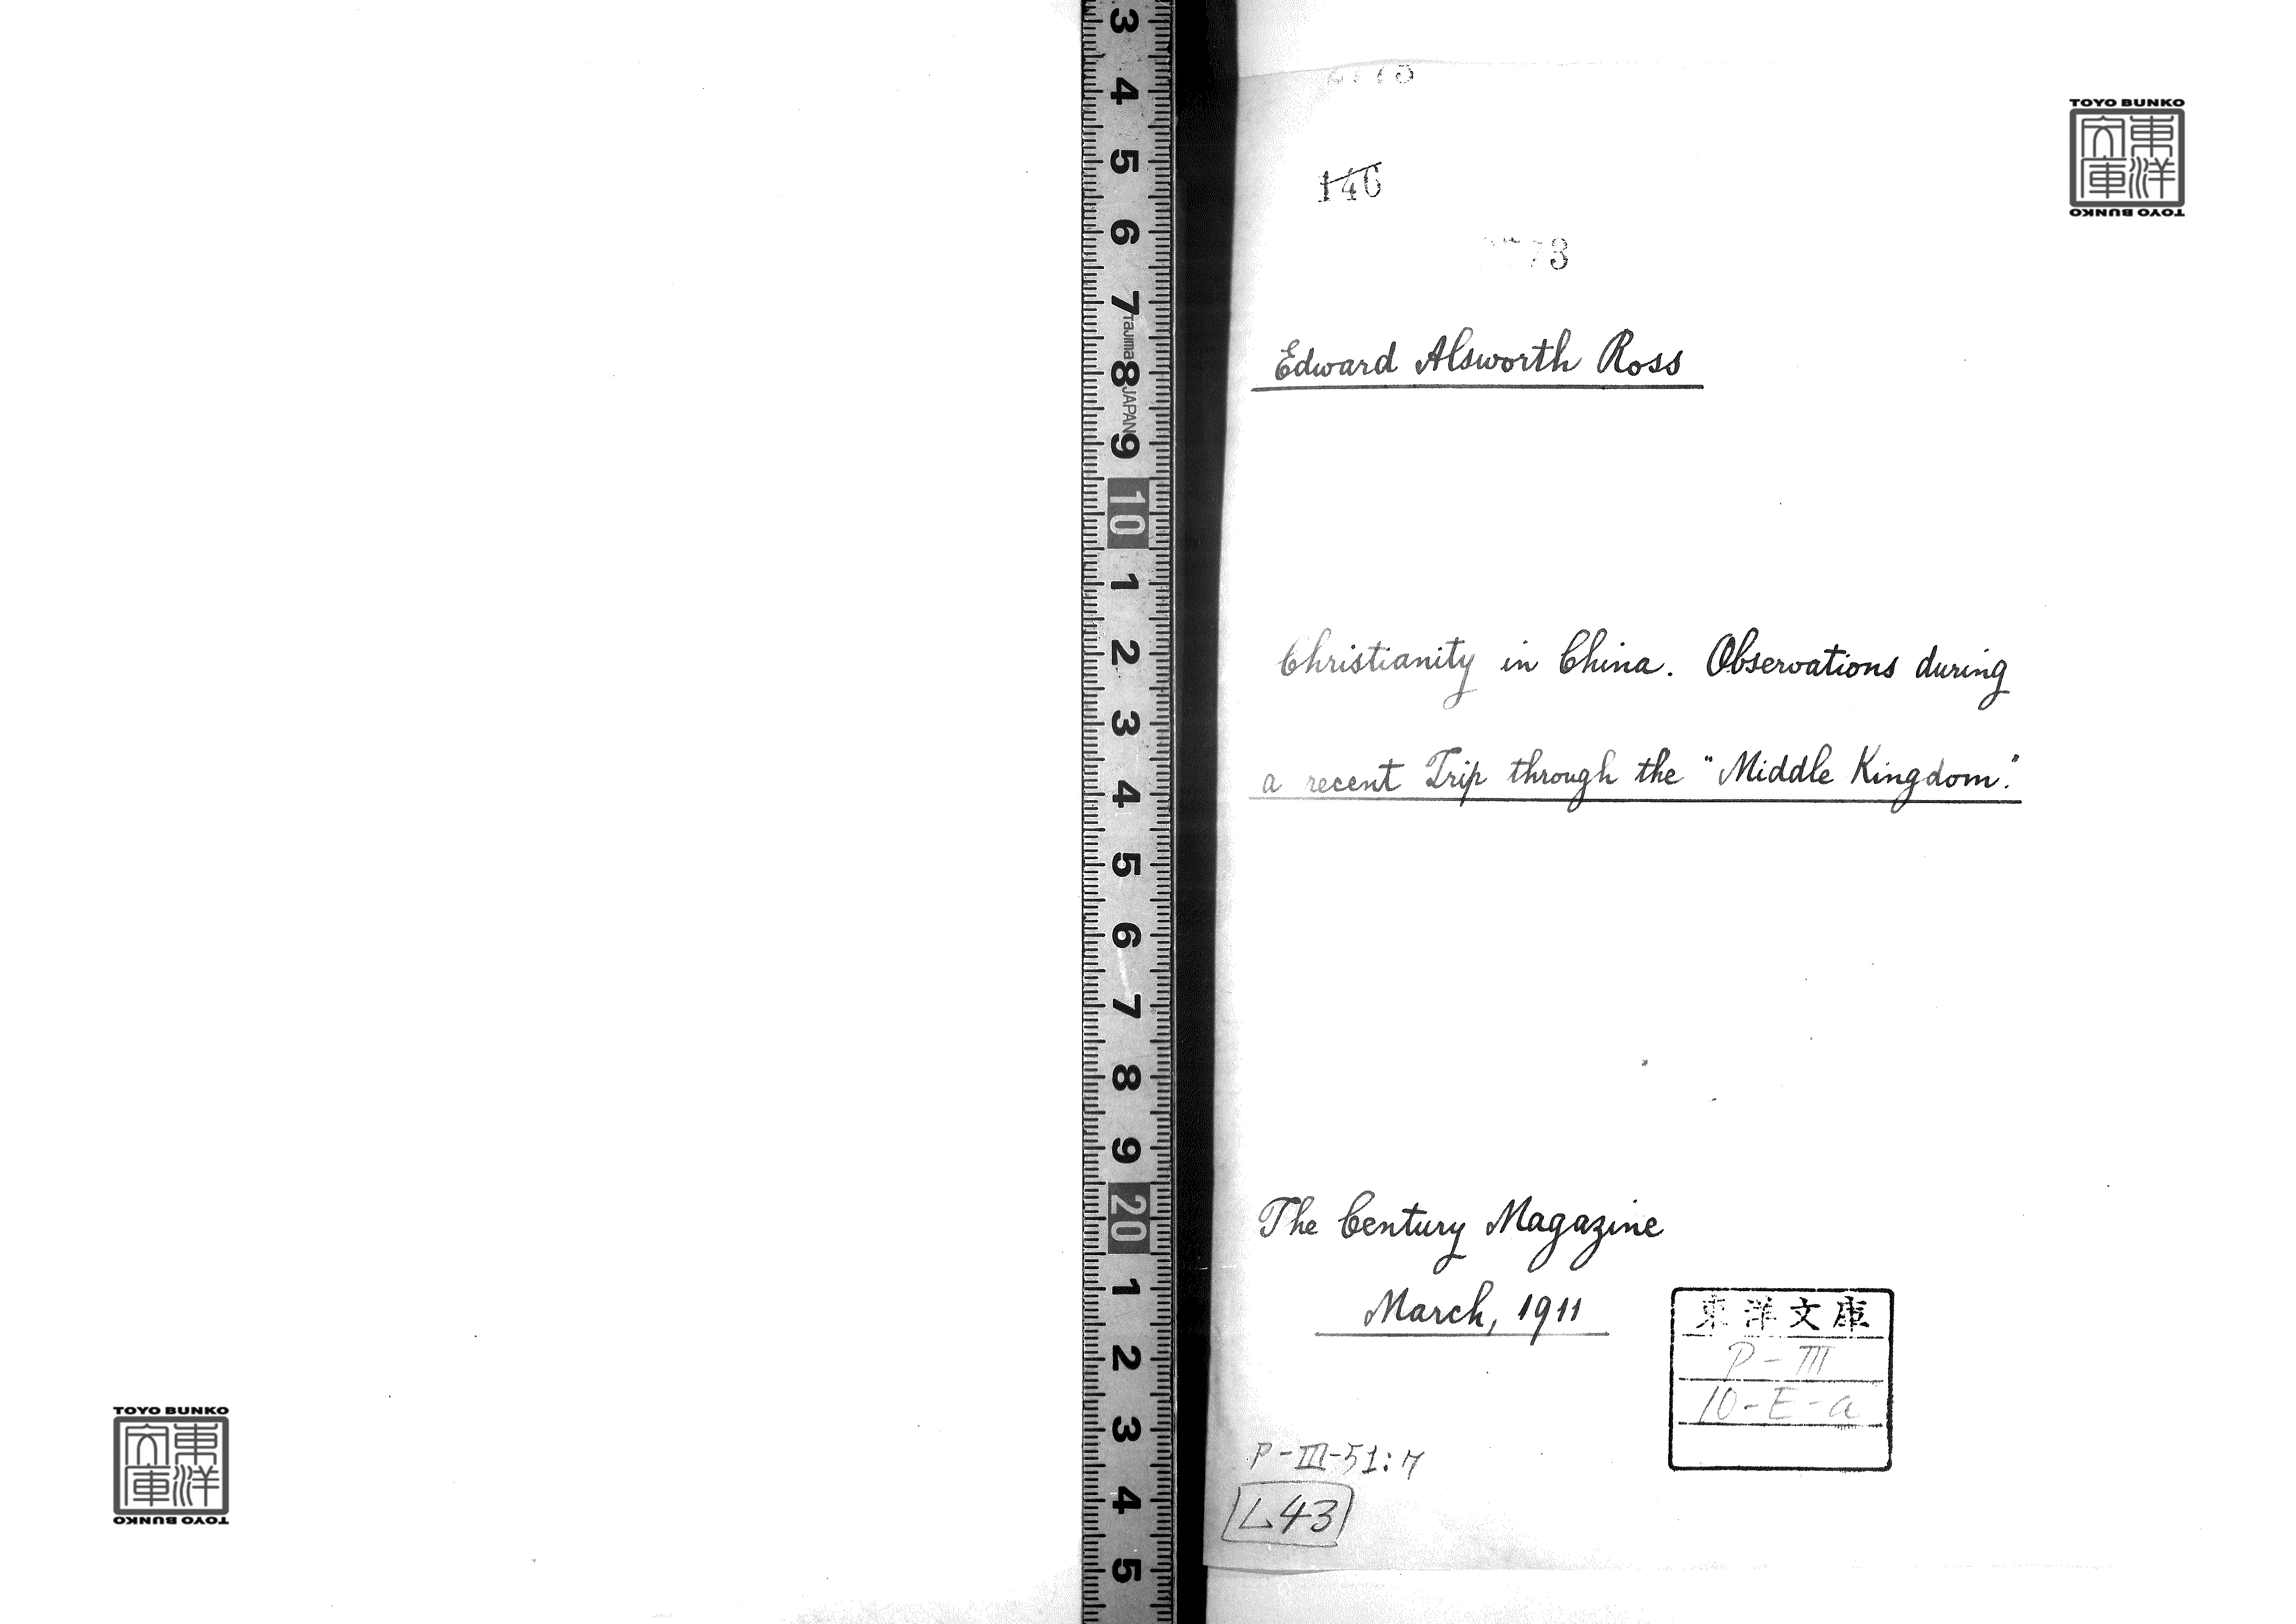 146
Edward Alsworth Ross
Christianity in China. Observations during
a recent Trip through the "Middle Kingdom."
The Century Magazine
March, 1911
東洋文庫
P-III
10-E-a
P-III-51:7
L43
TOYO BUNKO
東洋
文庫
TOYO BUNKO
TOYO BUNKO
東洋
文庫
TOYO BUNKO
3
4
5
6
7
Tajima
8
JAPAN
9
10
1
2
3
4
5
6
7
8
9
20
1
2
3
4
5